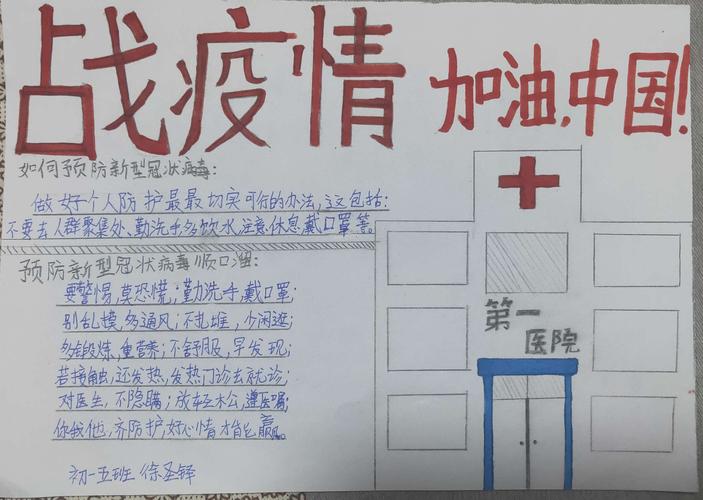 战疫情 加油,中国!
如何预防新型冠状病毒:
做好个人防护最最切实可行的办法,这包括:
不要去人群聚集处、勤洗手多饮水,注意休息戴口罩等。
预防新型冠状病毒顺口溜:
要警惕,莫恐慌;勤洗手,戴口罩;
别乱摸,多通风;不扎堆,少闲逛;
多锻炼,重营养;不舒服,早发现;
若接触,还发热,发热门诊去就诊;
对医生,不隐瞒;放轻松,遵医嘱;
你我他,齐防护,好心情才能赢。
初一五班 徐圣铎
第一
医院